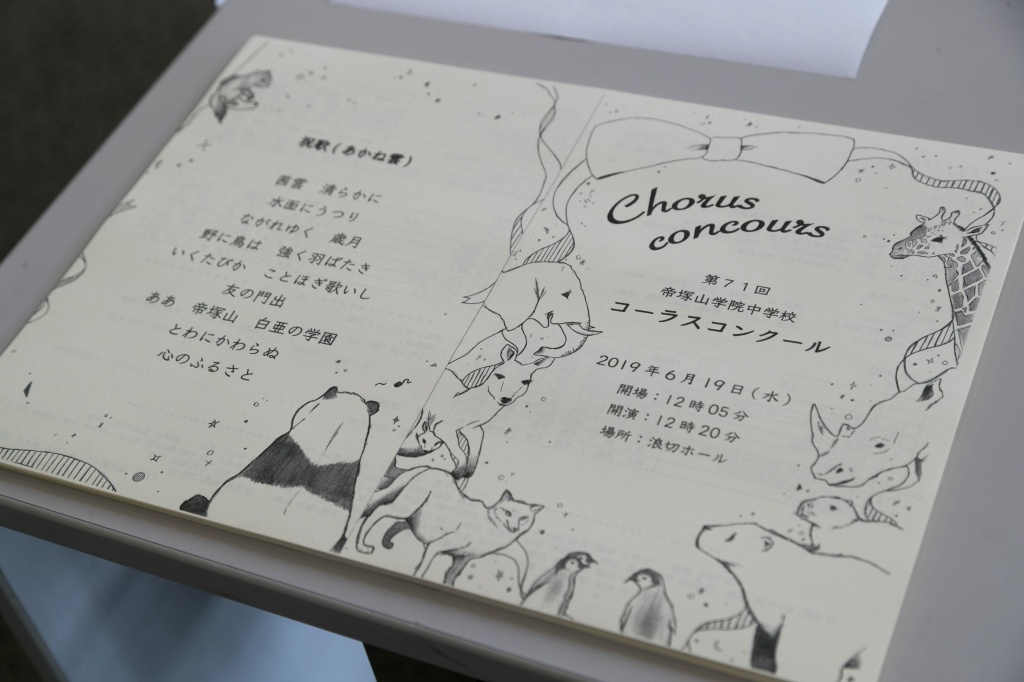 祝歌(あかね雲)
茜雲 清らかに
水面にうつり
ながれゆく 歳月
野に鳥は 強く羽ばたき
いくたびか ことほぎ歌いし
友の門出
ああ 帝塚山 白亜の学園
とわにかわらぬ
心のふるさと
Chorus
concours
第71回
帝塚山学院中学校
コーラスコンクール
2019年6月19日(水)
開場:12時05分
開演:12時20分
場所:浪切ホール